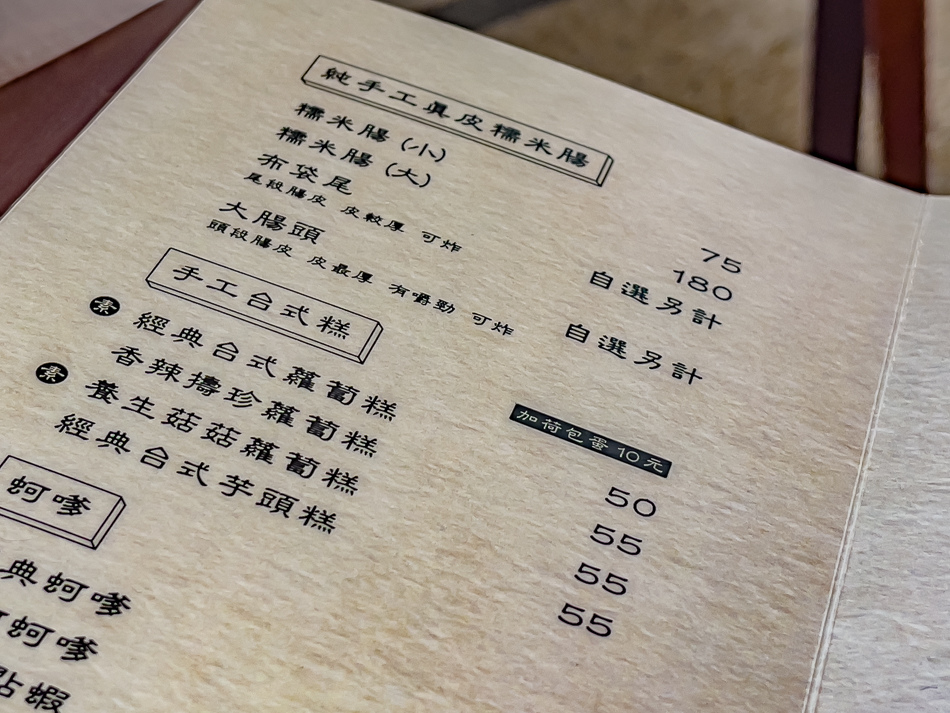 純手工真皮糯米腸
糯米腸(小) 75
糯米腸(大) 180
布袋尾 自選另計
尾段腸皮 皮較厚 可炸
大腸頭 自選另計
頭段腸皮 皮最厚 有嚼勁 可炸
手工台式糕
加荷包蛋10元
素 經典台式蘿蔔糕 50
香辣擣珍蘿蔔糕 55
素 養生菇菇蘿蔔糕 55
經典台式芋頭糕 55
蚵嗲
典蚵嗲
蚵嗲
蝦